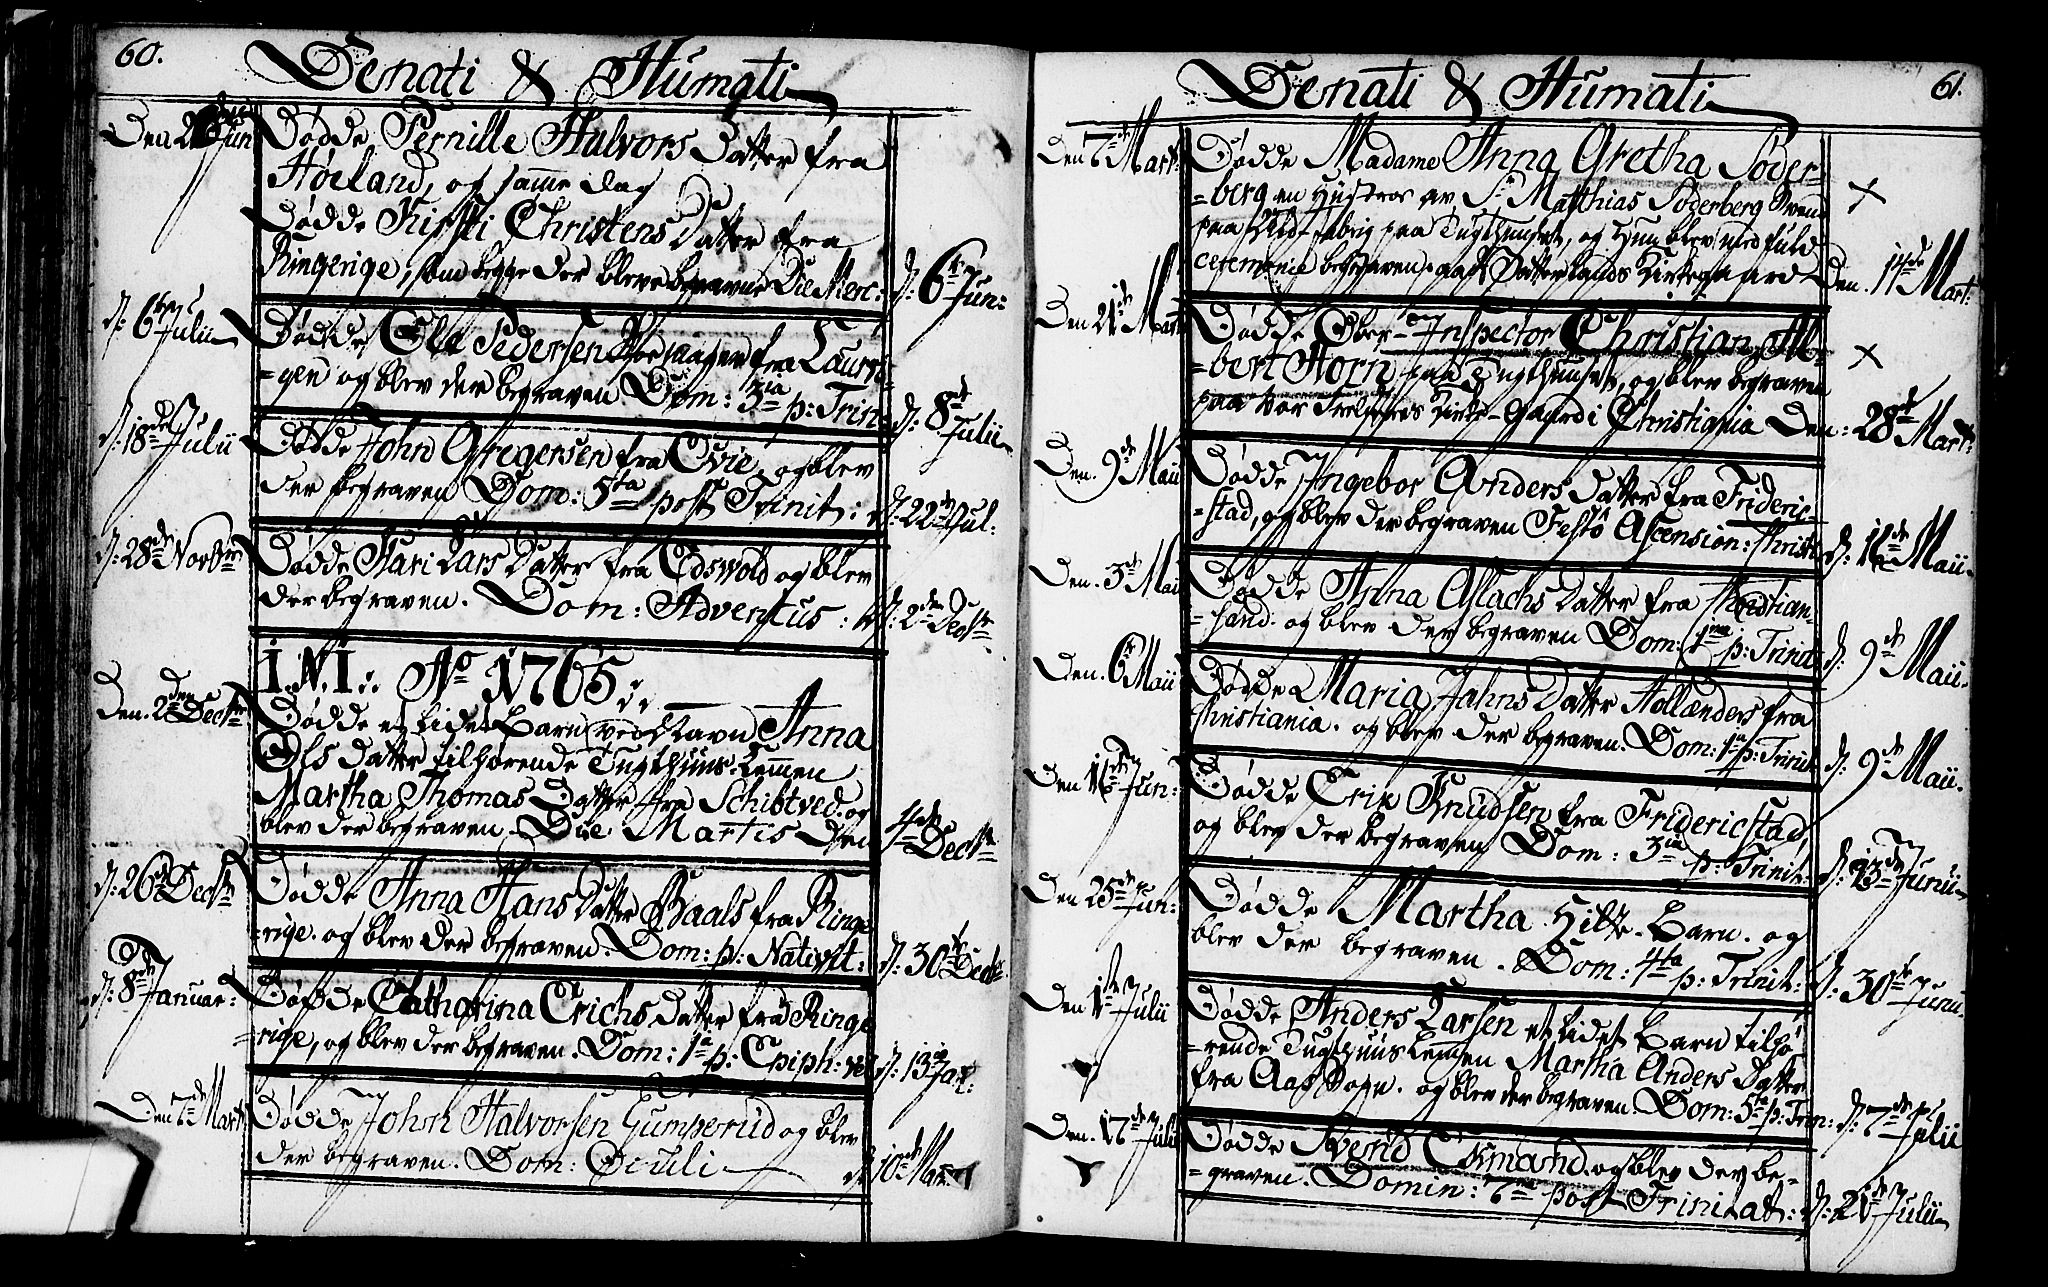 60.
Denati & Humati
Den 2 Jun
Dødde Pernille Halvors Datter fra
Høeland, og samme dag
Dødde Kirsti Christens Datter fra
Ringerige, som begge der bleve begravne Die Merc: d: 6te Jun:
d: 6te Julii
Dødde Ole Pedersen fra Laurvi-
-gen og blev der begraven Dom: 3ia p: Trin: d: 8de Julii
d: 18de Julii
Dødde John Gregersen fra Evie, og blev
der begraven Dom: 5ta post Trinit: d: 22de Jul:
d: 28de Novbr
Dødde Kari Lars Datter fra Edsvold og blev
der begraven. Dom: Adventus: d: 2den Decbr
I.N.I.: Ao 1765
Den. 2den Decbr
Dødde et lidet Barn ved Navn Anna
Ols Datter tilhørende Tugthuus-Lemmen
Martha Thomas Datter fra Schibtved. og
blev der begraven Die Martis Den 4de Decbr
d: 26de Decbr
Dødde Anna Hans Datter Baals fra Ringe-
-rige. og blev der begraven. Dom: p: Nativit: d: 30te Decbr
d: 8de Januar:
Dødde Catharina Erichs Datter fra Ringe
-rige, og blev der begraven. Dom: 1a p: Epiph: d: 13de Jan:
Den 7de Mart
Dødde John Halvorsen Gumperud og blev
der begraven. Dom: Oculi d: 10de Mar:
61.
Denati & Humati
Den 7de Mart:
Dødde Madame Anna Gretha Søder-
-berg en Hustroe av Sr Matthias Søderberg Svend
paa Uld-fabriq paa Tugthuuset, og Hun blev med fuld
ceremonie begraven paa Vatterlands Kirkegaard Den. 14de Mart:
Den 21de Mart
Dødde Ober-Inspector Christian Al-
-bert Horn paa Tugthuuset, og blev begraven
paa Vor Frelseres Kirke-Gaard i Christiania Den: 28de Mart:
Den. 9de Maii
Dødde Ingebor Anders Datter fra Frideric-
-stad, og blev der begraven Festo Ascension: Christi d: 16de Maii.
Den. 3de Maii
Dødde Anna Aslachs Datter fra Christian-
-sand. og blev der begraven Dom: 1ma p: Trinit: d: 9de Maii.
Den. 6te Maii
Dødde Maria Jahns Datter Hollænders fra
Christiania. og blev der begraven. Dom: 1a p: Trinit: d: 9de Maii.
Den 16de Jun:
Dødde Erix Knudsen fra Fridericstad
og blev der begraven Dom: 3ia p: Trinit: d: 23de Junii
Den 25de Jun:
Dødde Martha Hitte-Barn. og
blev der begraven. Dom: 4ta p: Trinit: d: 30te Junii.
Den 1te Julii
Dødde Anders Larsen et lidet Barn tilhø-
-rende Tugthuus Lemmen Martha Anders Datter
fra Aas Sogn. og blev der begraven. Dom: 5ta p: Trin: d: 7de Julii
Den. 17de Julii
Dødde Sverid Osmand. og blev der be-
-graven. Domin: 7ma post Trinitat: d: 21de Julii